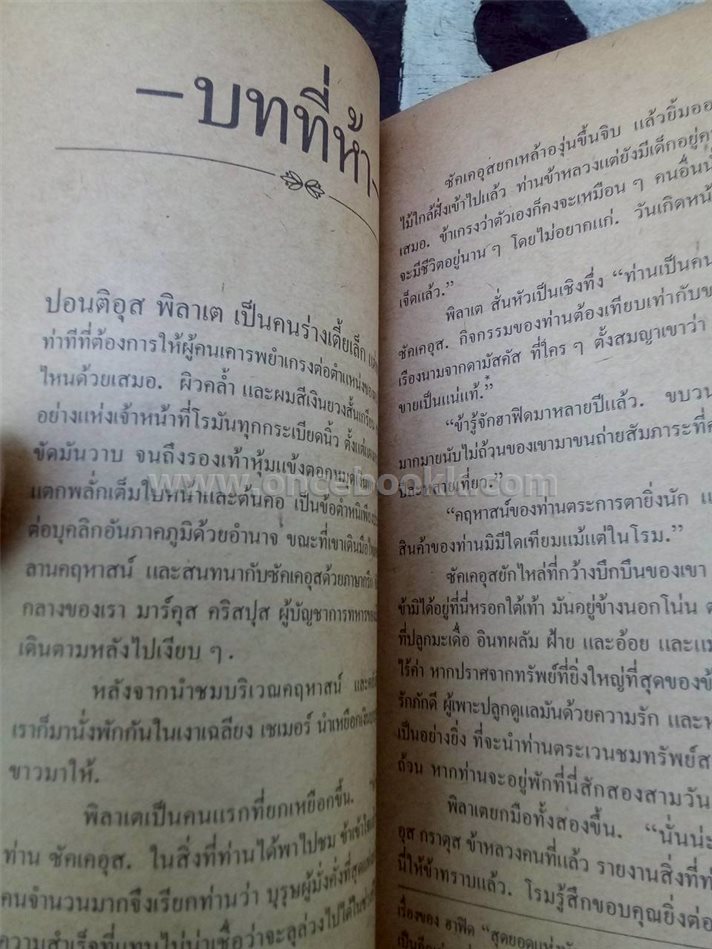 —บทที่ห้า
ปอนติอุส พิลาเต เป็นคนร่างเตี้ยเล็ก
ท่าทีที่ต้องการให้ผู้คนเคารพยำเกรงต่อตำแหน่ง
ไหนด้วยเสมอ. ผิวคล้ำ และผมสีเงินยวงสั้นเกรียน
อย่างแห่งเจ้าหน้าที่โรมันทุกกระเบียดนิ้ว ตั้งแต่
ขัดมันวาบ จนถึงรองเท้าหุ้มแข้งตอก
แตกพลั่กเต็มใบหน้าและต้นคอ เป็นข้อตำหนิเพียง
ต่อบุคลิกอันภาคภูมิด้วยอำนาจ ขณะที่เขาเดิน
ลานคฤหาสน์ และสนทนากับซัคเคอุสด้วยภาษากรีก
กลางของเรา มาร์คุส คริสปุส ผู้บัญชาการทหาร
เดินตามหลังไปเงียบ ๆ.
หลังจากนำชมบริเวณคฤหาสน์ และ
เราก็มานั่งพักกันในเงาเฉลียง เชเมอร์ นำเหยือก
ขาวมาให้.
พิลาเตเป็นคนแรกที่ยกเหยือกขึ้น.
ท่าน ซัคเคอุส. ในสิ่งที่ท่านได้พาไปชม
คนจำนวนมากจึงเรียกท่านว่า บุรุษผู้มั่งคั่งที่สุด
ความสำเร็จที่แทบไม่น่าเชื่อว่าจะลุล่วงไปได้ใน
ซัคเคอุสยกเหล้าองุ่นขึ้นจิบ แล้วยิ้ม
ไม้ใกล้ฝั่งเข้าไปแล้ว ท่านข้าหลวงแต่ยังมีเด็กอยู่
เสมอ. ข้าเกรงว่าตัวเองก็คงจะเหมือน ๆ คนอื่น
จะมีชีวิตอยู่นาน ๆ โดยไม่อยากแก่. วันเกิด
เจ็ดแล้ว.”
พิลาเต สั่นหัวเป็นเชิงทึ่ง “ท่านเป็นคน
ซัคเคอุส. กิจกรรมของท่านต้องเทียบเท่ากับ
เรื่องนามจากดามัสคัส ที่ใคร ๆ ตั้งสมญาเขาว่า
ขายเป็นแน่แท้.”
“ข้ารู้จักฮาฟิดมาหลายปีแล้ว. ขบวน
มากมายนับไม่ถ้วนของเขามาขนถ่ายสัมภาระที่
ปีละหลายเที่ยว.”
www.oncebookk.com
“คฤหาสน์ของท่านตระการตายิ่งนัก
สินค้าของท่านมิมีใดเทียมแม้แต่ในโรม.”
ซัคเคอุสยักไหล่ที่กว้างบึกบึนของเขา
ข้ามิได้อยู่ที่นี่หรอกใต้เท้า มันอยู่ข้างนอกโน่น
ที่ปลูกมะเดื่อ อินทผลัม ฝ้าย และอ้อย
ไร้ค่า หากปราศจากทรัพย์ที่ยิ่งใหญ่ที่สุดของ
รักภักดี ผู้เพาะปลูกดูแลมันด้วยความรัก
เป็นอย่างยิ่ง ที่จะนำท่านตระเวนชมทรัพย์
ถ้วน หากท่านจะอยู่พักที่นี่สักสองสามวัน
พิลาเตยกมือทั้งสองขึ้น. “นั่น
อุส กราตุส ข้าหลวงคนที่แล้ว รายงานสิ่งที่
นี้ให้ข้าทราบแล้ว. โรมรู้สึกขอบคุณยิ่ง
เรื่องของ ฮาฟิด